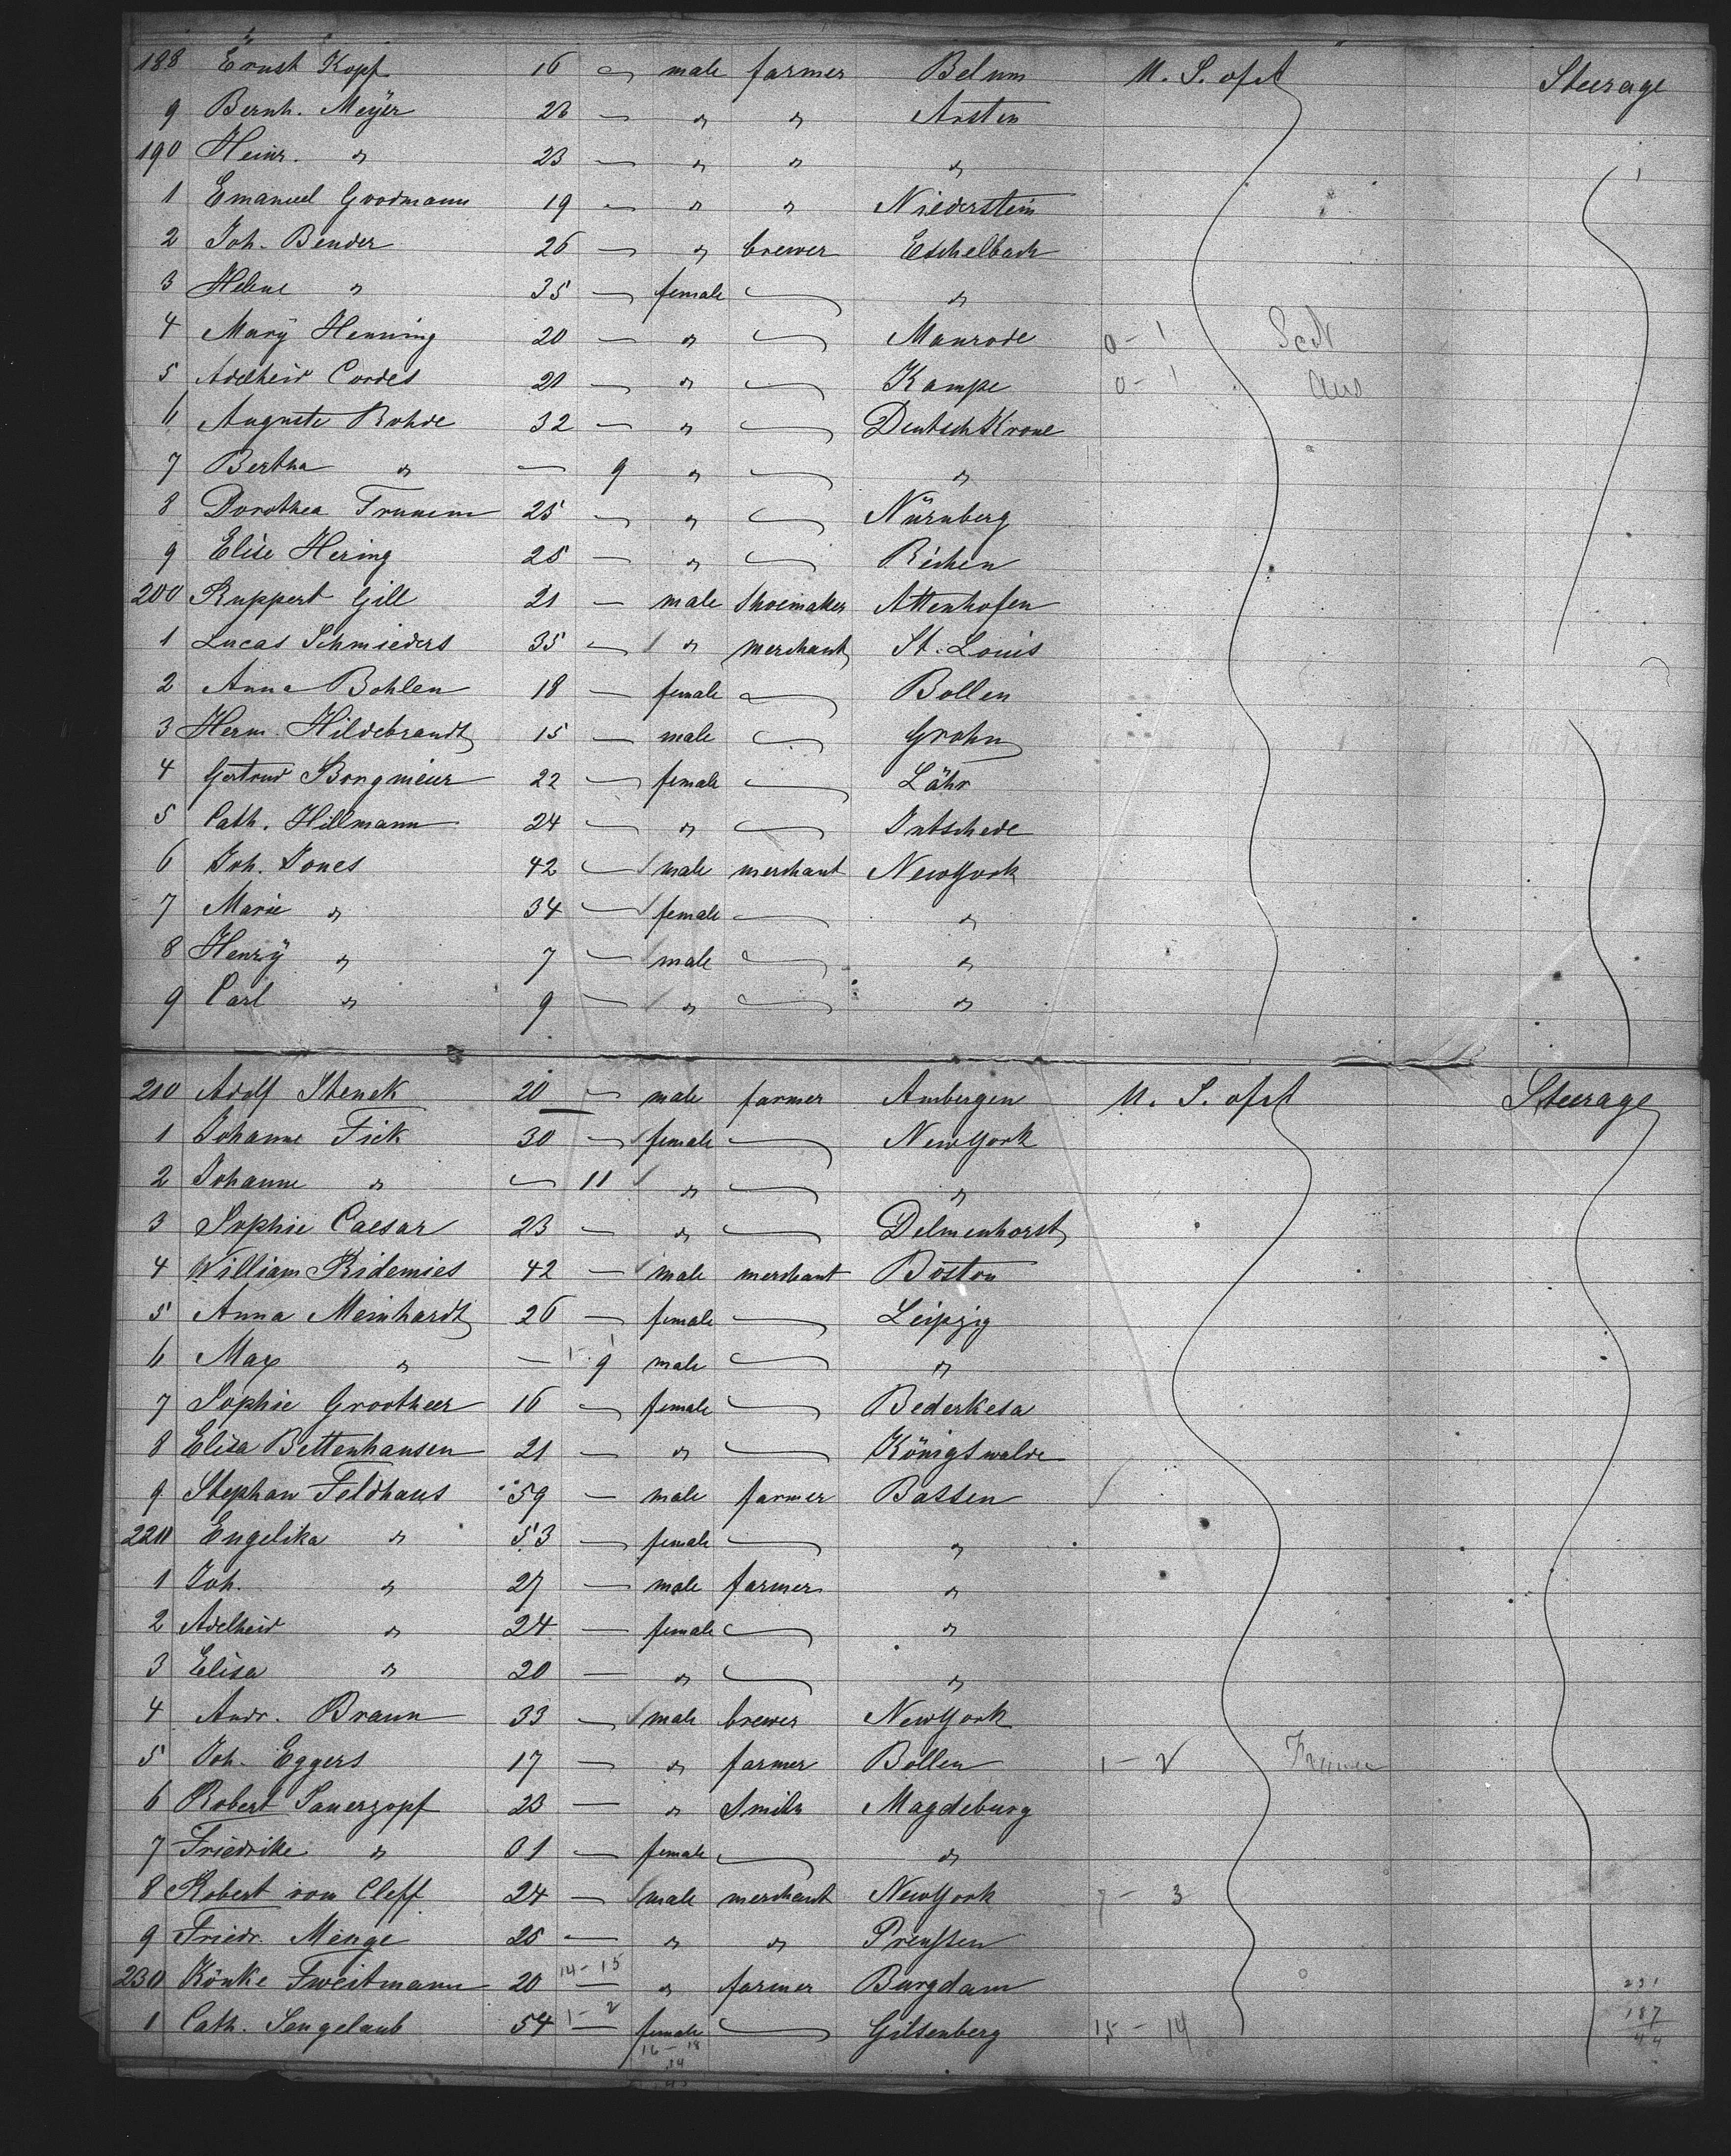 188 Ernst Kopf 16 — male farmer Belum U. S. of A Steerage
9 Bernh. Meÿer 26 — " " Arsten
190 Heinr. " 23 — " " "
1 Emanuel Goodmann 19 — " " Niederstein
2 Joh. Bender 26 — " brewer Eschelbach
3 Helene " 35 — female — "
4 Marÿ Henning 20 — " — Manrode 0 - 1
5 Adelheid Cordes 21 — " — Kampe 0 - 1
6 Auguste Rohde 32 — " — Deutsch Krone
7 Bertha " — 9 " — "
8 Dorothea 25 — " — Nürnberg
9 Elise Hering 25 — " — Richen
200 Ruppert Gill 21 — male Shoemaker Attenhofen
1 Lucas Schmieders 35 — " merchant St. Louis
2 Anna Bohlen 18 — female — Bollen
3 Herm. Hildebrandt 15 — male — Grohn
4 Gertrud Borgmeier 22 — female — Lähr
5 Cath. Hillmann 24 — " — Intschede
6 Joh. Jones 42 — male merchant NewYork
7 Marie " 34 — female — "
8 Henrÿ " 7 — male — "
9 Carl " 9 — " — "
210 Adolf Stenek 20 — male farmer Ambergen U. S. of A Steerage
1 Johanne Fick 30 — female — NewYork
2 Johanne " — 11 " — "
3 Sophie Caesar 23 — " — Delmenhorst
4 William Ridemies 42 — male merchant Boston
5 Anna Meinhardt 26 — female — Leipzig
6 Max " — 9 male — "
7 Sophie Grootheer 16 — female — Bederkesa
8 Elisa Bettenhausen 21 — " — Königswalde
9 Stephan Feldhaus 59 — male farmer Bassen
220 Engelika " 53 — female — "
1 Joh. " 27 — male farmer "
2 Adelheid " 24 — female — "
3 Elisa " 20 — " — "
4 Andr. Braun 33 — male brewer NewYork
5 Joh. Eggers 17 — " farmer Bollen 1 - 2
6 Robert Sauerzopf 23 — " Smith Magdeburg
7 Friedrike " 31 — female — "
8 Robert von Cleff 24 — male merchant NewYork 7 - 3
9 Friedr. Menge 25 — " " Preussen
230 Könke Tweitmann 20 14 - 15 — " farmer Burgdam 231
1 Cath. Sengelaub 54 1 - 2 — female — Gilsenberg 15 - 14 187
16 - 18 44
34